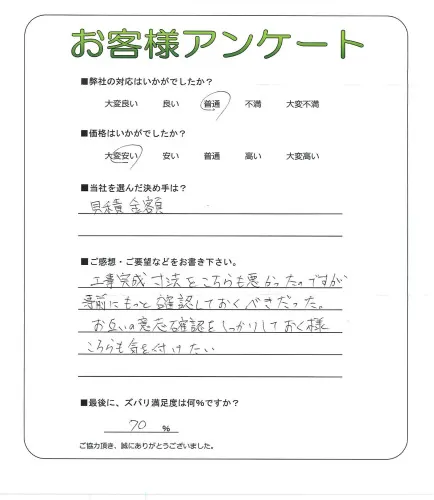 お客様アンケート
■弊社の対応はいかがでしたか？
大変良い 良い 普通 不満 大変不満
■価格はいかがでしたか？
大変安い 安い 普通 高い 大変高い
■当社を選んだ決め手は？
見積金額
■ご感想・ご要望などをお書き下さい。
工事完成寸法をこちらも悪かったのですが
事前にもっと確認しておくべきだった。
お互いの意志確認をしっかりしておく様
こちらも気を付けたい
■最後に、ズバリ満足度は何％ですか？
70 ％
ご協力頂き、誠にありがとうございました。